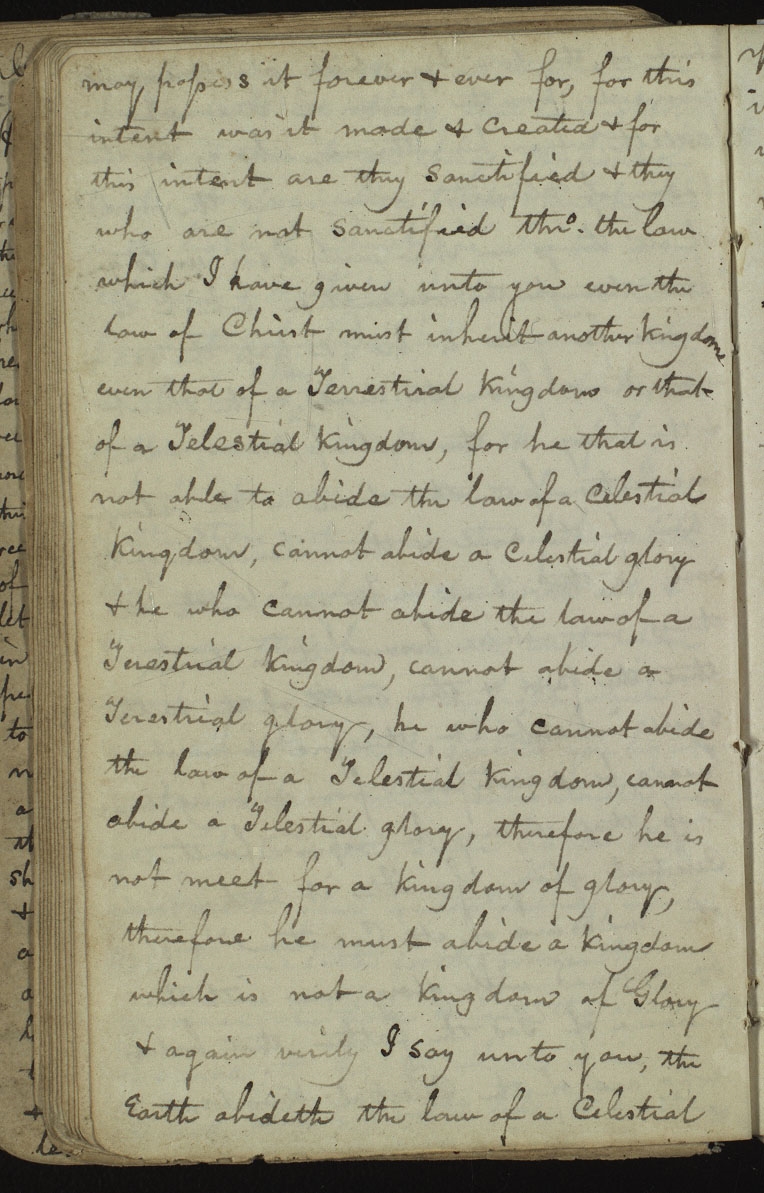 may, possess it forever & ever for, for this
intent was it made & Created & for
this intent are they Sanctified & they
who are not Sanctified thro. the law
which I have given unto you even the
law of Christ must inherit another Kingdom
even that of a Terrestiral Kingdom or that
of a Telestial Kingdom, for he that is
not able to abide the law of a Celestial
Kingdom, cannot abide a Celestial glory
& he who cannot abide the law of a
Terestrial Kingdom, cannot abide a
Terestrial glory, he who cannot abide
the law of a Telestial Kingdom, cannot
abide a Telestial glory, therefore he is
not meet for a Kingdom of glory,
therefore he must abide a Kingdom
which is not a Kingdom of Glory
& again verily I say unto you, the
Earth abideth the law of a Celestial